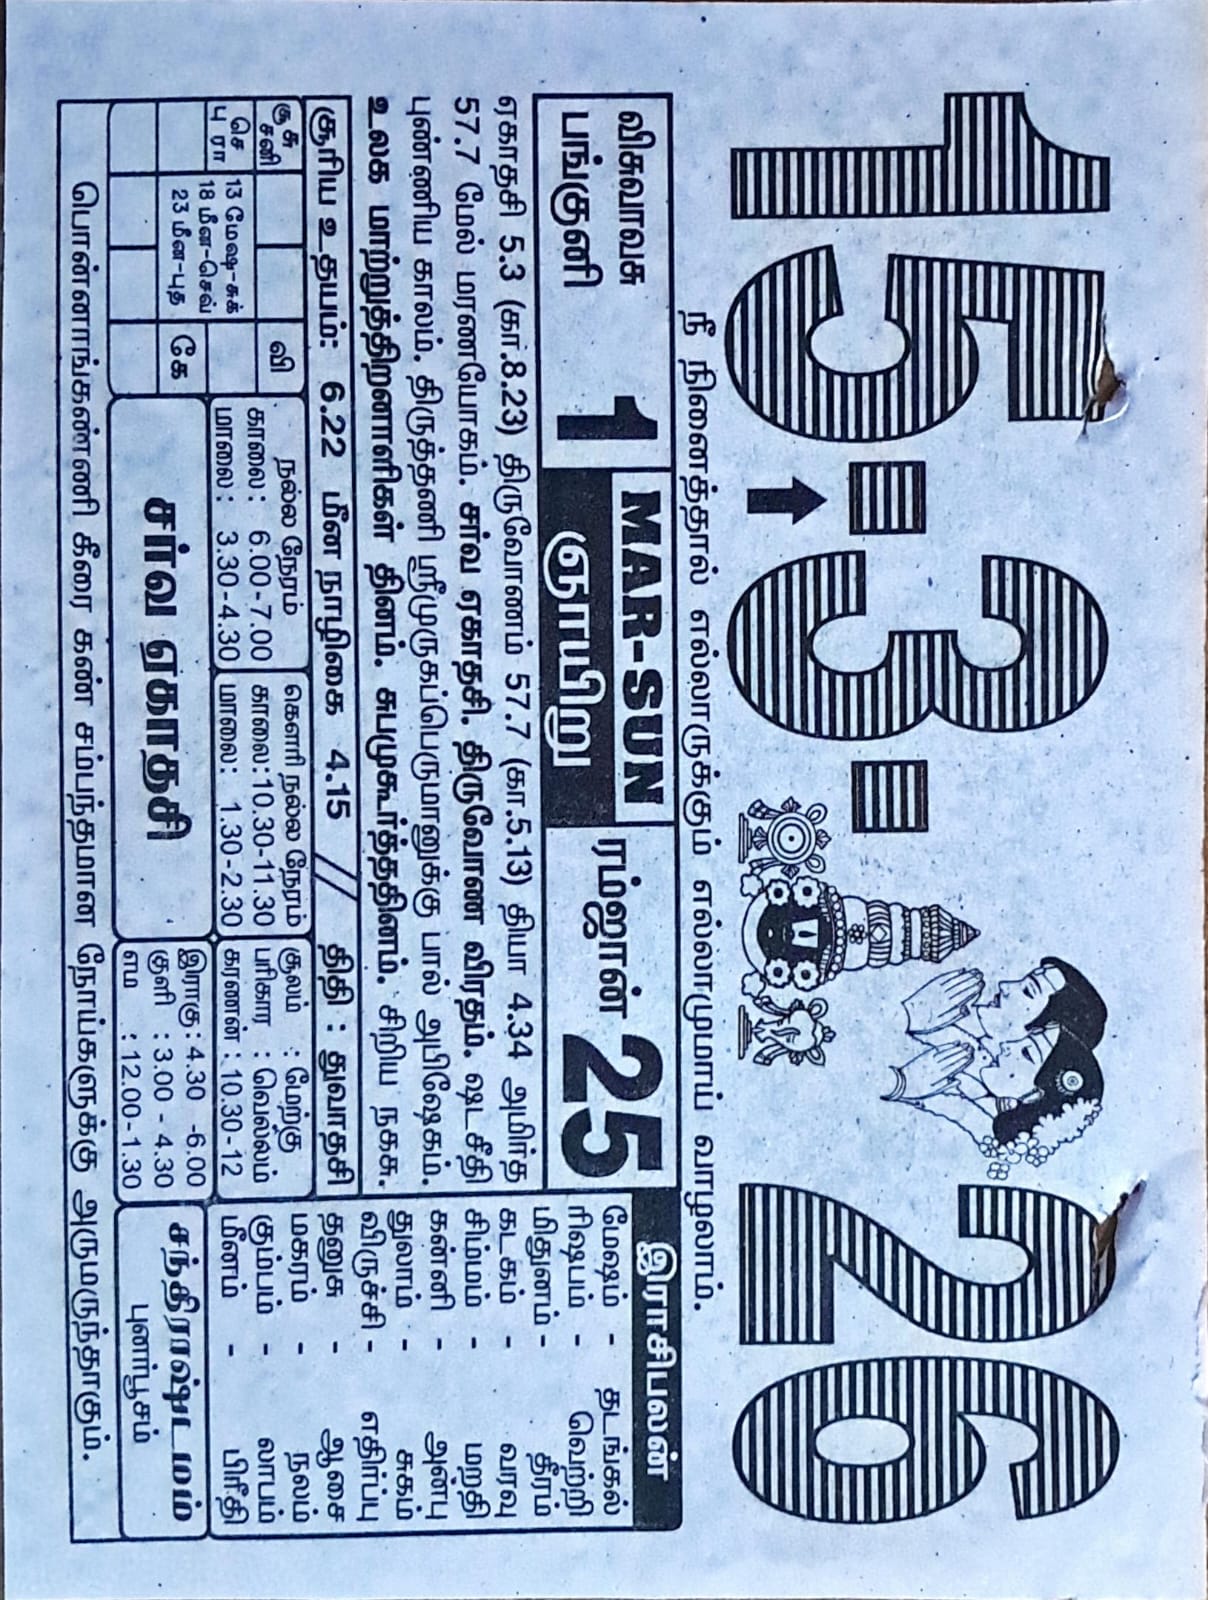 15-3-26
நீ நினைத்தால் எல்லாருக்கும் எல்லாமுமாய் வாழலாம்.
விசுவாவசு
பங்குனி
1
MAR-SUN
ஞாயிறு
ரம்ஜான்
25
ஏகாதசி 5.3 (கா.8.23) திருவோணம் 57.7 (கா.5.13) தியா 4.34 அமிர்த
57.7 மேல் மரணயோகம். சர்வ ஏகாதசி. திருவோண விரதம். ஷடசீதி
புண்ணிய காலம். திருத்தணி ஸ்ரீமுருகப்பெருமானுக்கு பால் அபிஷேகம்.
உலக மாற்றுத்திறனாளிகள் தினம். சுபமுகூர்த்ததினம். சிறிய நகசு.
சூரிய உதயம்: 6.22 மீன நாழிகை 4.15 // திதி : துவாதசி
சூ சு
சனி
செ
பு ரா
வி
கே
13 மேஷ-சுக்
18 மீன-செவ்
23 மீன-புத
நல்ல நேரம்
காலை: 6.00-7.00
மாலை: 3.30-4.30
கௌரி நல்ல நேரம்
காலை:10.30-11.30
மாலை: 1.30-2.30
சூலம் : மேற்கு
பரிகார : வெல்லம்
கரணன் : 10.30-12
சர்வ ஏகாதசி
இராகு: 4.30 -6.00
குளி : 3.00 - 4.30
எம : 12.00-1.30
இராசிபலன்
மேஷம் - தடங்கல்
ரிஷபம் - வெற்றி
மிதுனம் - தீரம்
கடகம் - வரவு
சிம்மம் - மறதி
கன்னி - அன்பு
துலாம் - சுகம்
விருச்சி - எதிர்ப்பு
தனுசு - ஆசை
மகரம் - நலம்
கும்பம் - லாபம்
மீனம் - பிரீதி
சந்திராஷ்டமம்
புனர்பூசம்
பொன்னாங்கண்ணி கீரை கண் சம்பந்தமான நோய்களுக்கு அருமருந்தாகும்.